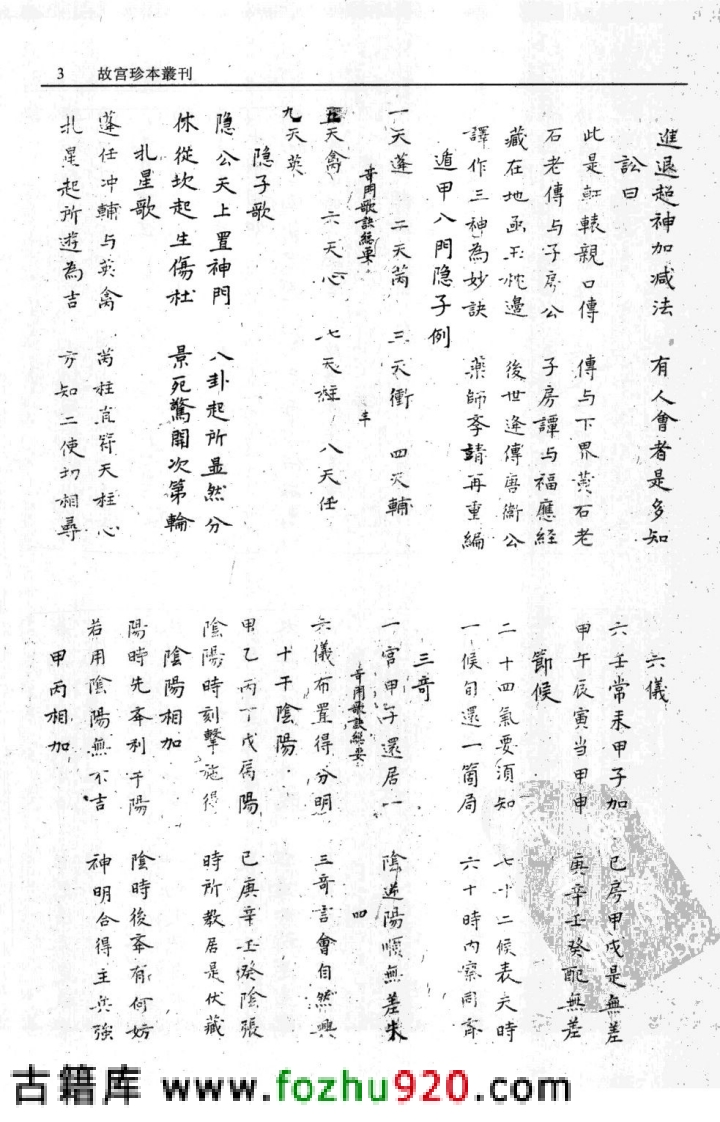 3 故宮珍本叢刊
進退超神加減法 有人會者是多知
訟曰
此是軒轅親口傳 傳與下界黃石老
石老傳與子房公 子房譚与福應經
藏在地函玉枕邊 後世逢傳唐衞公
譯作三神為妙訣 藥師李靖再重編
遁甲八門隐子例
一天蓬 二天芮 三天衝 四天輔
奇門歌訣總要 三
五天禽 六天心 七天柱 八天任
九天英
隐子歌
隐公天上置神門 八卦起所显然分
休從坎起生傷杜 景死驚開次第輪
九星歌
蓬任冲輔与英禽 芮柱
九星起所遊為吉 方知二使切相尋
六儀
六壬常来甲子加 己房甲戌是無差
甲午辰寅当甲申 庚辛壬癸配無差
節候
二十四氣要須知 七十二候表天時
一候旬還一箇局 六十時内察同斎
三奇
一宫甲子還居一 陰逆陽順無差失
奇門歌訣總要 四
六儀布置得分明 三奇言會自然興
十干陰陽
甲乙丙丁戊属陽 己庚辛壬癸陰張
陰陽時刻擊施得 時所教居是伏藏
陰陽相加
陽時先奉利于陽 陰時後奉有何妨
若用陰陽無不吉 神明合得主兵強
甲丙相加
古籍库 www.fozhu920.com